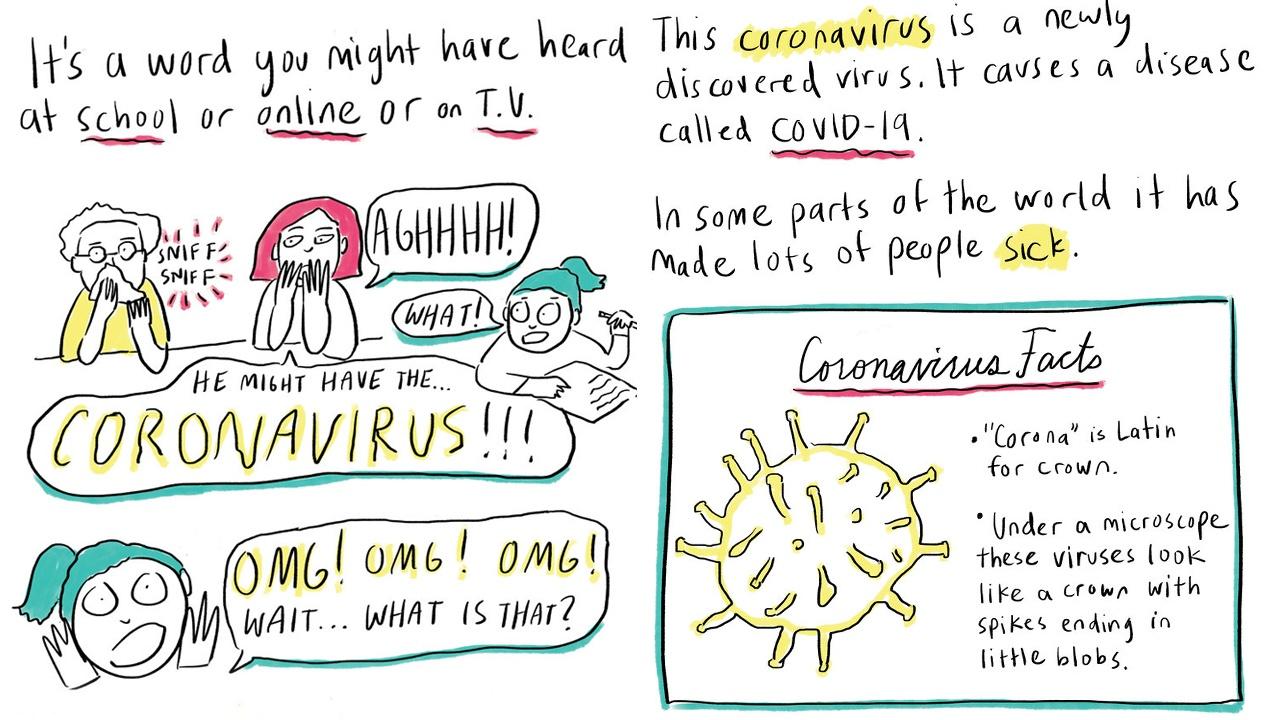 It's a word you might have heard
at school or online or on T.V.
SNIFF
SNIFF
AGHHHH!
WHAT!
HE MIGHT HAVE THE...
CORONAVIRUS!!!
OMG! OMG! OMG!
WAIT... WHAT IS THAT?
This coronavirus is a newly
discovered virus. It causes a disease
called COVID-19.
In some parts of the world it has
made lots of people sick.
Coronavirus Facts
•"Corona" is Latin
for crown.
•Under a microscope
these viruses look
like a crown with
spikes ending in
little blobs.